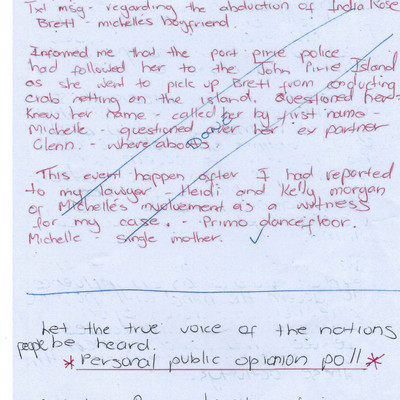 Txt msg - regarding the abduction of India Rose
Brett - michelle's boyfriend.
Informed me that the port pirie police
had followed her to the John Pirie Island
as she went to pick up Brett from conducting
crab netting on the island. Questioned her -
Knew her name - called her by first name -
Michelle - questioned over her ex partner
Glenn. - where abouts.
This event happen after I had reported
to my lawyer - Heidi and Kelly morgan
of Michelle's involvement as a witness
for my case. - Primo dancefloor.
Michelle - single mother.
Let the true voice of the nations
people be heard.
*Personal public opionion poll*